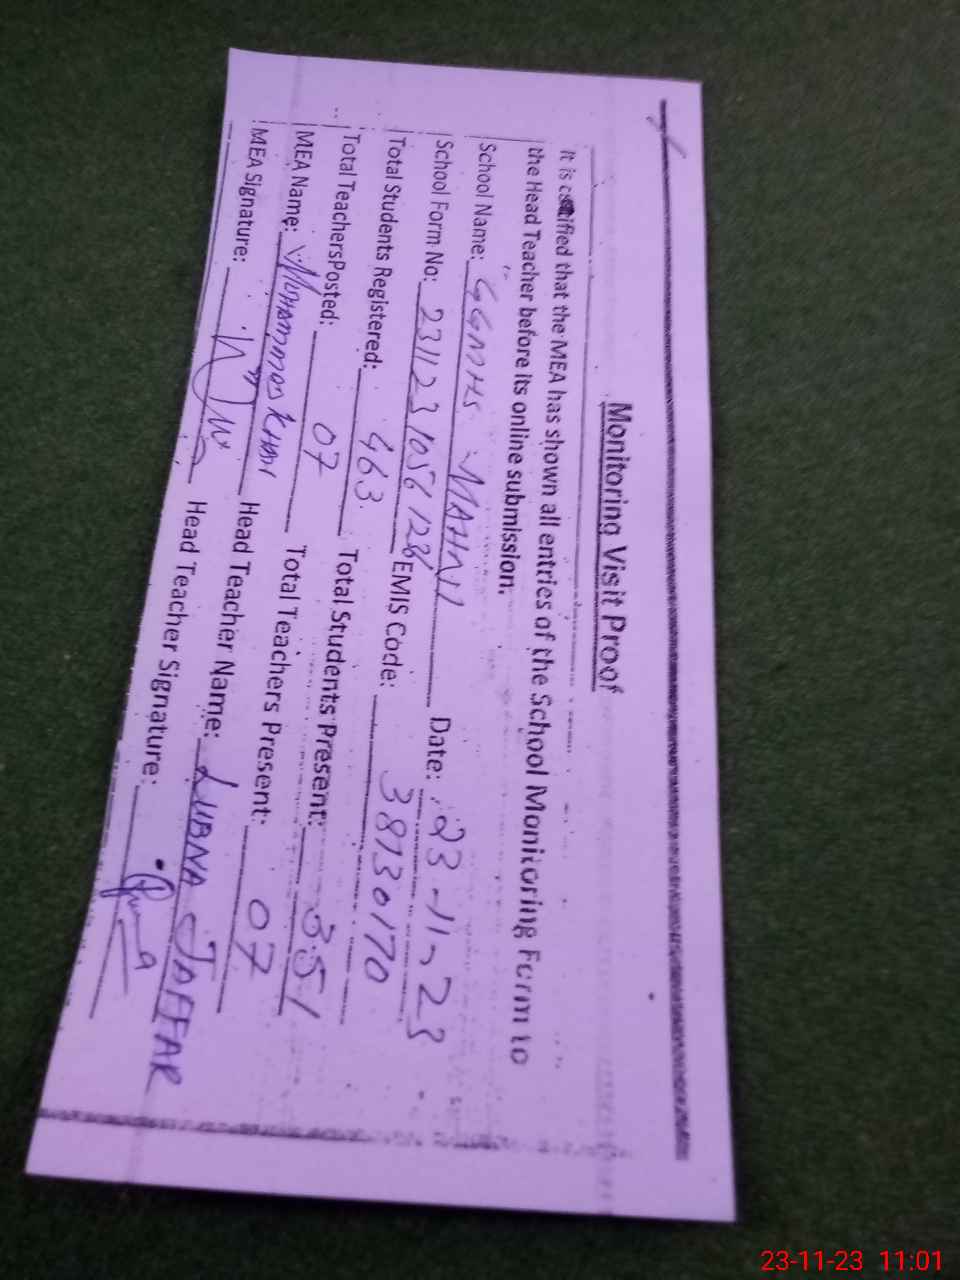 Monitoring Visit Proof
It is certified that the MEA has shown all entries of the School Monitoring Form to
the Head Teacher before its online submission.
School Name: GGMHS Date: 23-11-23
School Form No: 231123 1056 128 EMIS Code: 38730170
Total Students Registered: 463 Total Students Present: 351
Total TeachersPosted: 07 Total Teachers Present: 07
MEA Name: MUHAMMAD KHAN Head Teacher Name: LUBNA JAFFAR
MEA Signature: Head Teacher Signature:
23-11-23 11:01